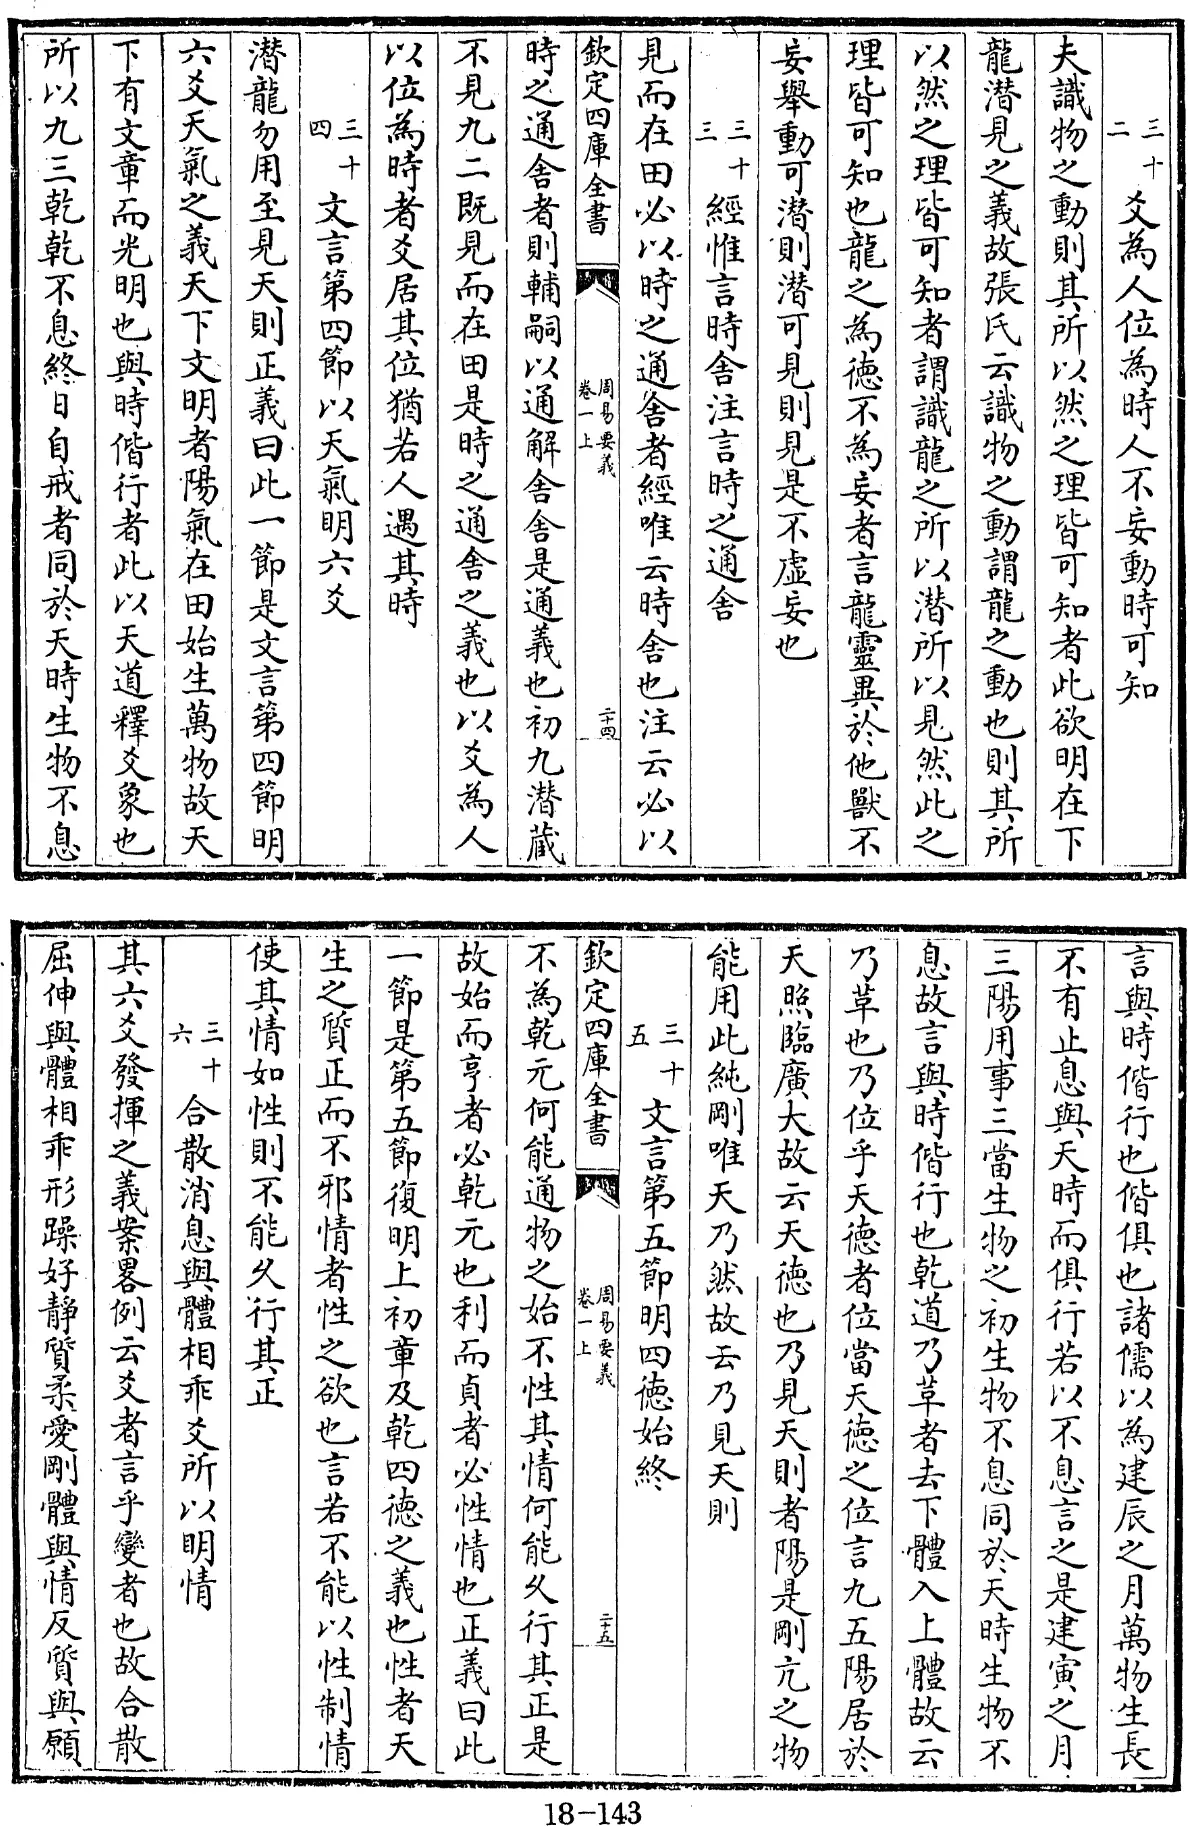 三十二　爻為人位為時人不妄動時可知
夫識物之動則其所以然之理皆可知者此欲明在下
龍潛見之義故張氏云識物之動謂龍之動也則其所
以然之理皆可知者謂識龍之所以潛所以見然此之
理皆可知也龍之為徳不為妄者言龍靈異於他獸不
妄舉動可潛則潛可見則見是不虛妄也
三十三　經惟言時舍注言時之通舍
見而在田必以時之通舍者經唯云時舍也注云必以
欽定四庫全書
周易要義
卷一上
二十四
時之通舍者則輔嗣以通解舍舍是通義也初九潛藏
不見九二既見而在田是時之通舍之義也以爻為人
以位為時者爻居其位猶若人遇其時
三十四　文言第四節以天氣明六爻
潛龍勿用至見天則正義曰此一節是文言第四節明
六爻天氣之義天下文明者陽氣在田始生萬物故天
下有文章而光明也與時偕行者此以天道釋爻象也
所以九三乾乾不息終日自戒者同於天時生物不息
言與時偕行也偕俱也諸儒以為建辰之月萬物生長
不有止息與天時而俱行若以不息言之是建寅之月
三陽用事三當生物之初生物不息同於天時生物不
息故言與時偕行也乾道乃革者去下體入上體故云
乃革也乃位乎天徳者位當天徳之位言九五陽居於
天照臨廣大故云天徳也乃見天則者陽是剛亢之物
能用此純剛唯天乃然故云乃見天則
三十五　文言第五節明四徳始終
欽定四庫全書
周易要義
卷一上
二十五
不為乾元何能通物之始不性其情何能久行其正是
故始而亨者必乾元也利而貞者必性情也正義曰此
一節是第五節復明上初章及乾四徳之義也性者天
生之質正而不邪情者性之欲也言若不能以性制情
使其情如性則不能久行其正
三十六　合散消息與體相乖爻所以明情
其六爻發揮之義案畧例云爻者言乎變者也故合散
屈伸與體相乖形躁好靜質柔愛剛體與情反質與願
18-143